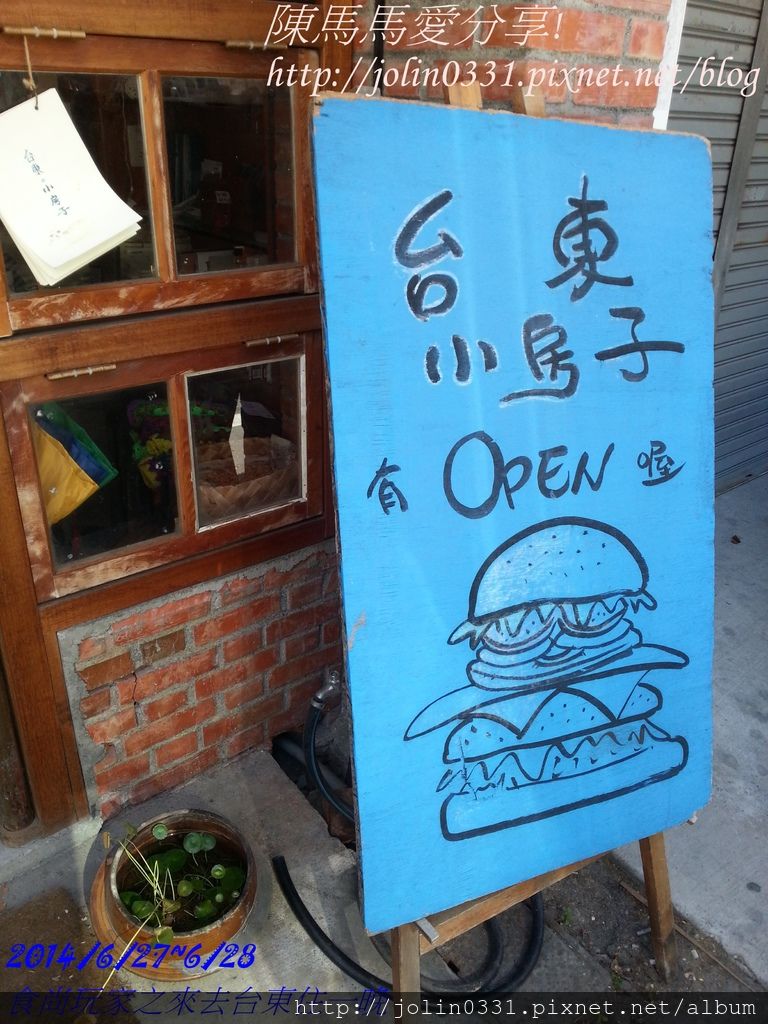 陳馬馬愛分享!
http://jolin0331.pixnet.net/blog
台東小房子
台東
小房子
有 OPEN 喔
2014/6/27~6/28
食尚玩家之來去台東住一晚
http://jolin0331.pixnet.net/album